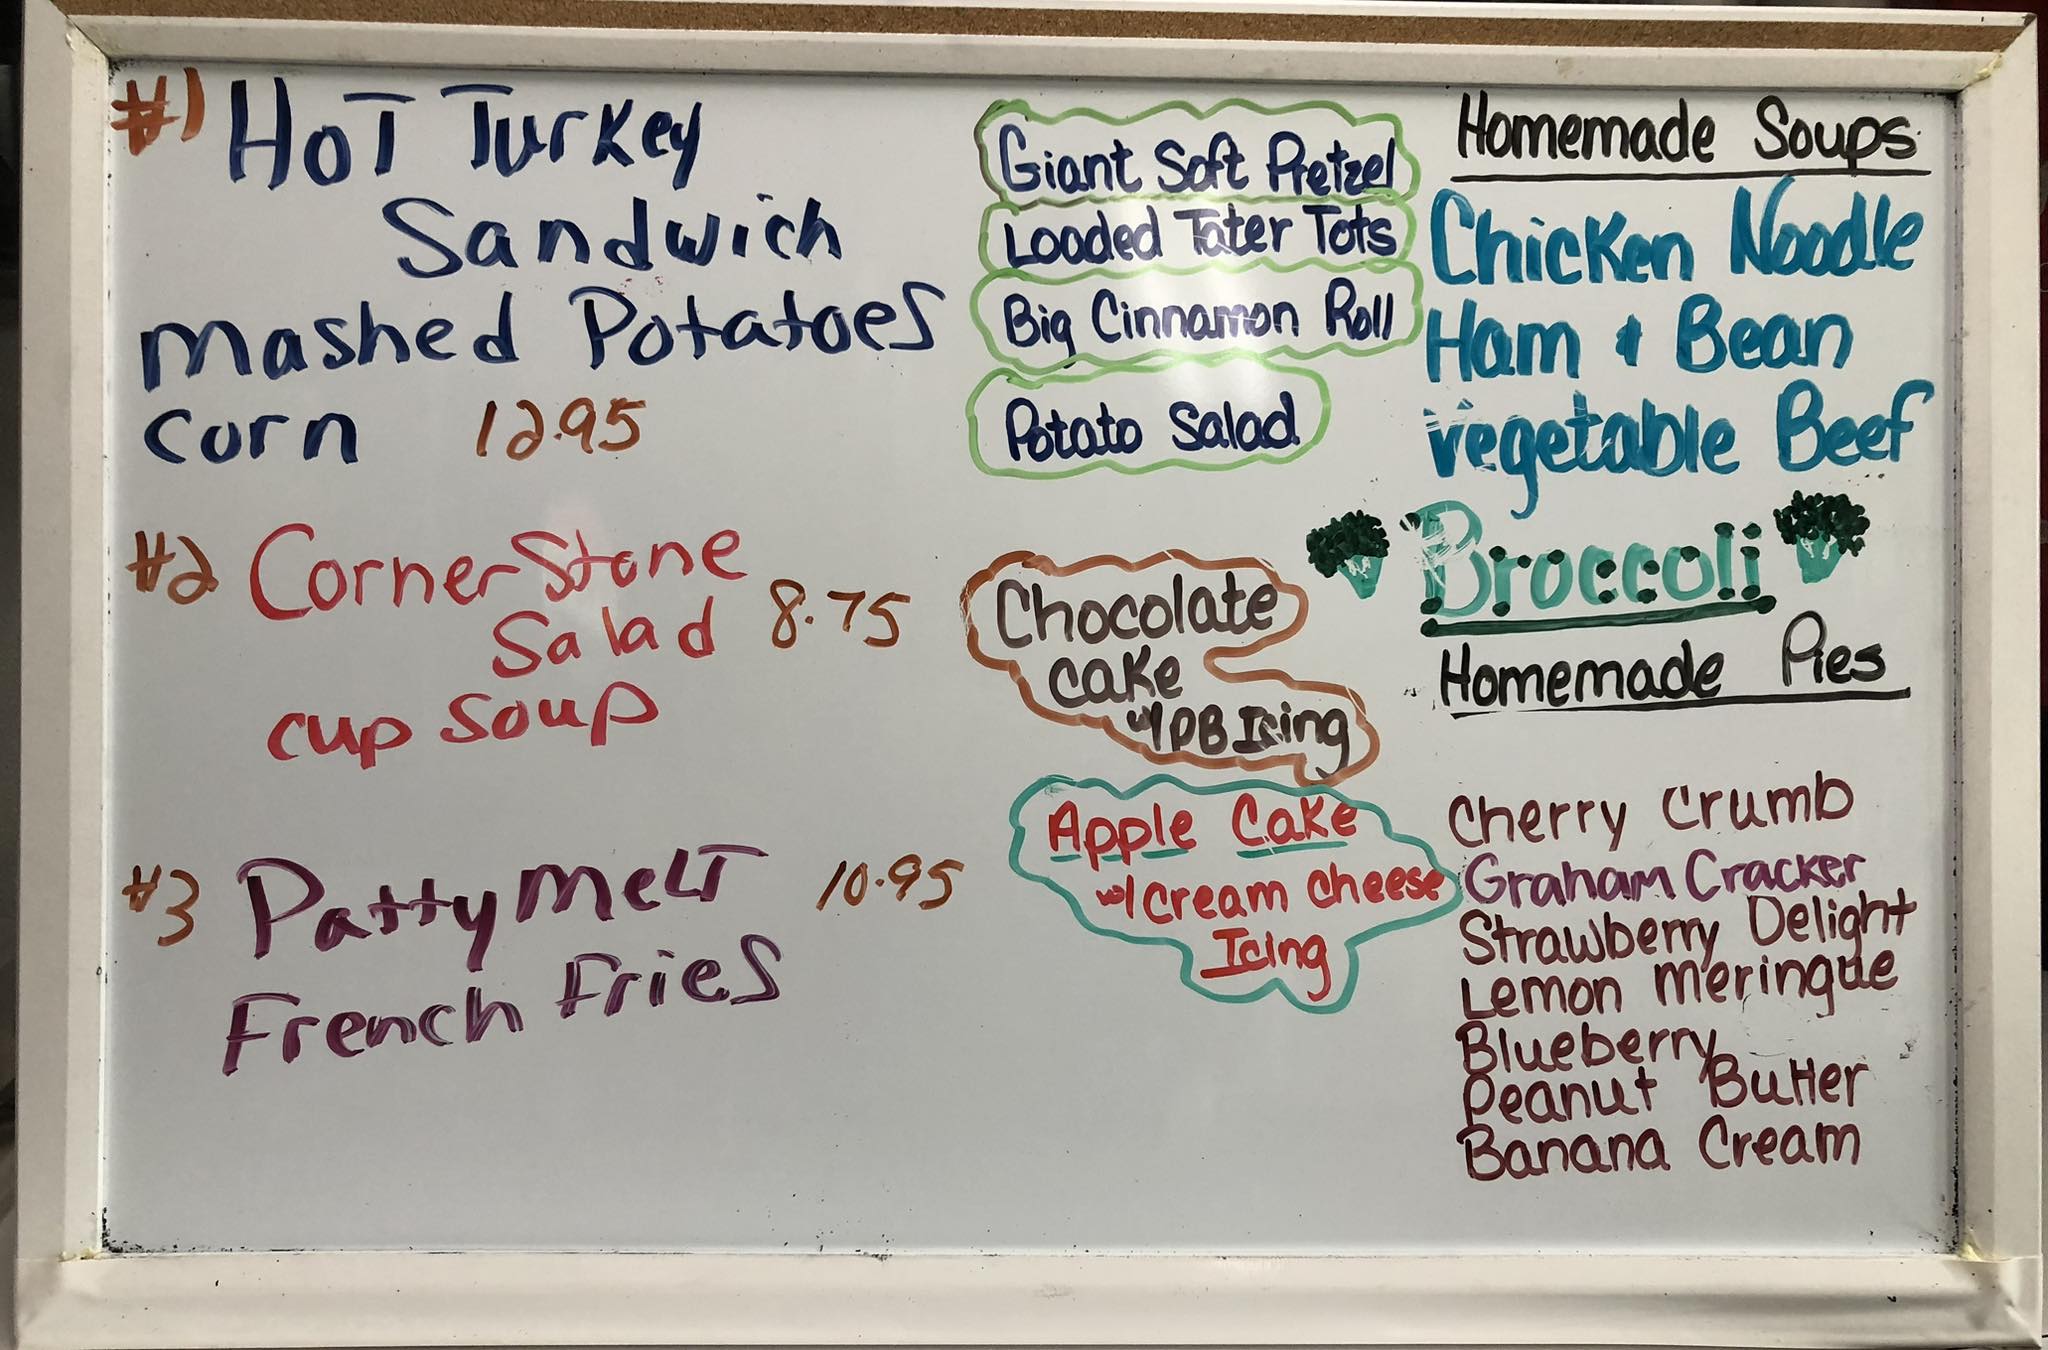 #1 Hot Turkey
Sandwich
mashed Potatoes
corn 12.95
#2 CornerStone
Salad 8.75
cup soup
#3 Patty melt 10.95
French Fries
Giant Soft Pretzel
Loaded Tater Tots
Big Cinnamon Roll
Potato Salad
Chocolate
cake
w/ PB Icing
Apple Cake
w/ Cream Cheese
Icing
Homemade Soups
Chicken Noodle
Ham & Bean
vegetable Beef
Broccoli
Homemade Pies
Cherry Crumb
Graham Cracker
Strawberry Delight
Lemon Meringue
Blueberry
Peanut Butter
Banana Cream